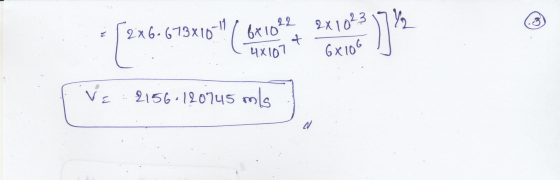 = [2×6.673×10^-11 (6×10^22/4×10^7 + 2×10^23/6×10^6)]^1/2
3
V = 2156.120745 m/s